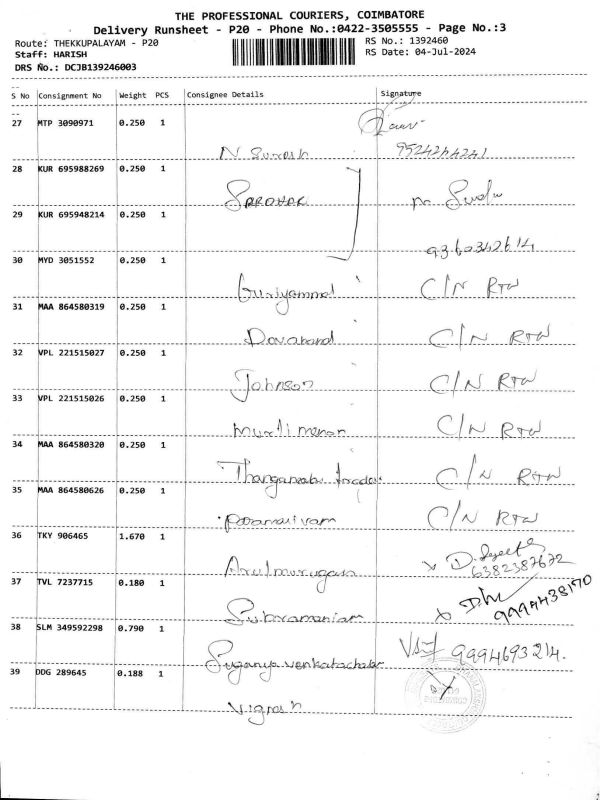 THE PROFESSIONAL COURIERS, COIMBATORE
Delivery Runsheet - P20 - Phone No.:0422-3505555 - Page No.:3
Route: THEKKUPALAYAM - P20
RS No.: 1392460
Staff: HARISH
RS Date: 04-Jul-2024
DRS No.: DCJB139246003
S No Consignment No Weight PCS Consignee Details Signature
27 MTP 3090971 0.250 1
N Suresh 9524264241
28 KUR 695988269 0.250 1
29 KUR 695948214 0.250 1
9360342614
30 MYD 3051552 0.250 1
Guriyammal C/N RTW
31 MAA 864580319 0.250 1
Davanand C/N RTW
32 VPL 221515027 0.250 1
Johnson C/N RTW
33 VPL 221515026 0.250 1
Murlimenon C/N RTW
34 MAA 864580320 0.250 1
C/N RTW
35 MAA 864580626 0.250 1
C/N RTW
36 TKY 906465 1.670 1
Arulmurugan 6382387672
37 TVL 7237715 0.180 1
Subramaniam 9994438170
38 SLM 349592298 0.790 1
Suganya Venkatachalam 9994693214.
39 DDG 289645 0.188 1
Vignesh